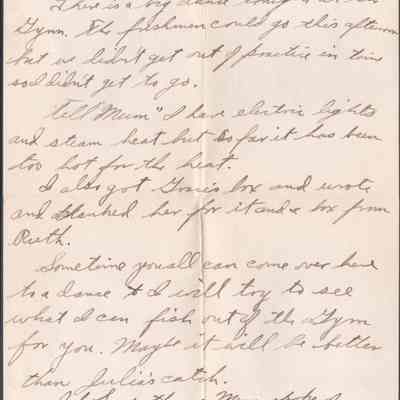 There is a big dance
Gym. The freshmen could go this afternoon
but we didn't get out of practice in time
so I didn't get to go.
"Tell Mum" I have electric lights
and steam heat but so far it has been
too hot for the heat.
I also got Gracie's box and wrote
and thanked her for it and a box from
Ruth.
Sometime you all can come over here
to a dance & I will try to see
what I can fish out of the Gym
for you. Maybe it will be better
than Julia's catch.